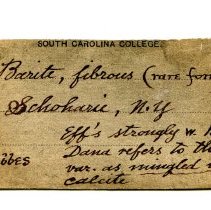 SOUTH CAROLINA COLLEGE.
Barite, fibrous (rare for
Schoharie, N.Y
Eff's strongly w. H
bbes Dana refers to th
var. as mingled
calcite